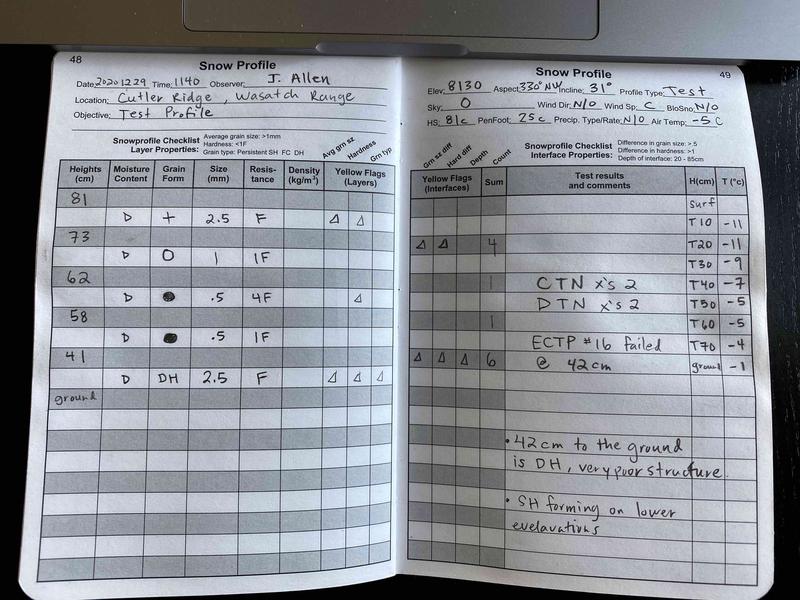 48
Snow Profile
Date: 20201229 Time: 1140 Observer: J. Allen
Location: Cutler Ridge, Wasatch Range
Objective: Test Profile
Snowprofile Checklist
Layer Properties:
Average grain size: >1mm
Hardness: <1F
Grain type: Persistent SH FC DH
Avg grn sz
Hardness
Grn typ
Heights (cm) Moisture Content Grain Form Size (mm) Resis-tance Density (kg/m³) Yellow Flags (Layers)
81
D + 2.5 F Δ Δ
73
D O 1 1F
62
D ● .5 4F Δ
58
D ● .5 1F
41
D DH 2.5 F Δ Δ Δ
ground
49
Snow Profile
Elev: 8130 Aspect: 330° NW Incline: 31° Profile Type: Test
Sky: O Wind Dir: N/O Wind Sp: C BloSno: N/O
HS: 81c PenFoot: 25c Precip. Type/Rate: N/O Air Temp: -5 C
Grn sz diff
Hard diff
Depth
Count
Snowprofile Checklist
Interface Properties:
Difference in grain size: >.5
Difference in hardness: >1
Depth of interface: 20 - 85cm
Yellow Flags (Interfaces) Sum Test results and comments H(cm) T (°c)
surf
T10 -11
Δ Δ 4 T20 -11
T30 -9
1 CTN x's 2 T40 -7
DTN x's 2 T50 -5
1 T60 -5
ECTP #16 failed T70 -4
Δ Δ Δ 6 @ 42cm ground -1
• 42cm to the ground
is DH, very poor structure.
• SH forming on lower
evelavations